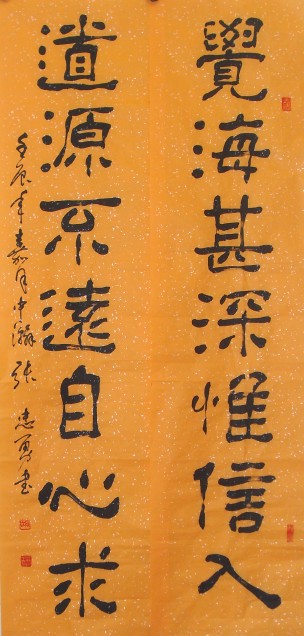 覺海甚深惟信入
道源不遠自心求
壬辰年嘉月中瀚張忠勇書